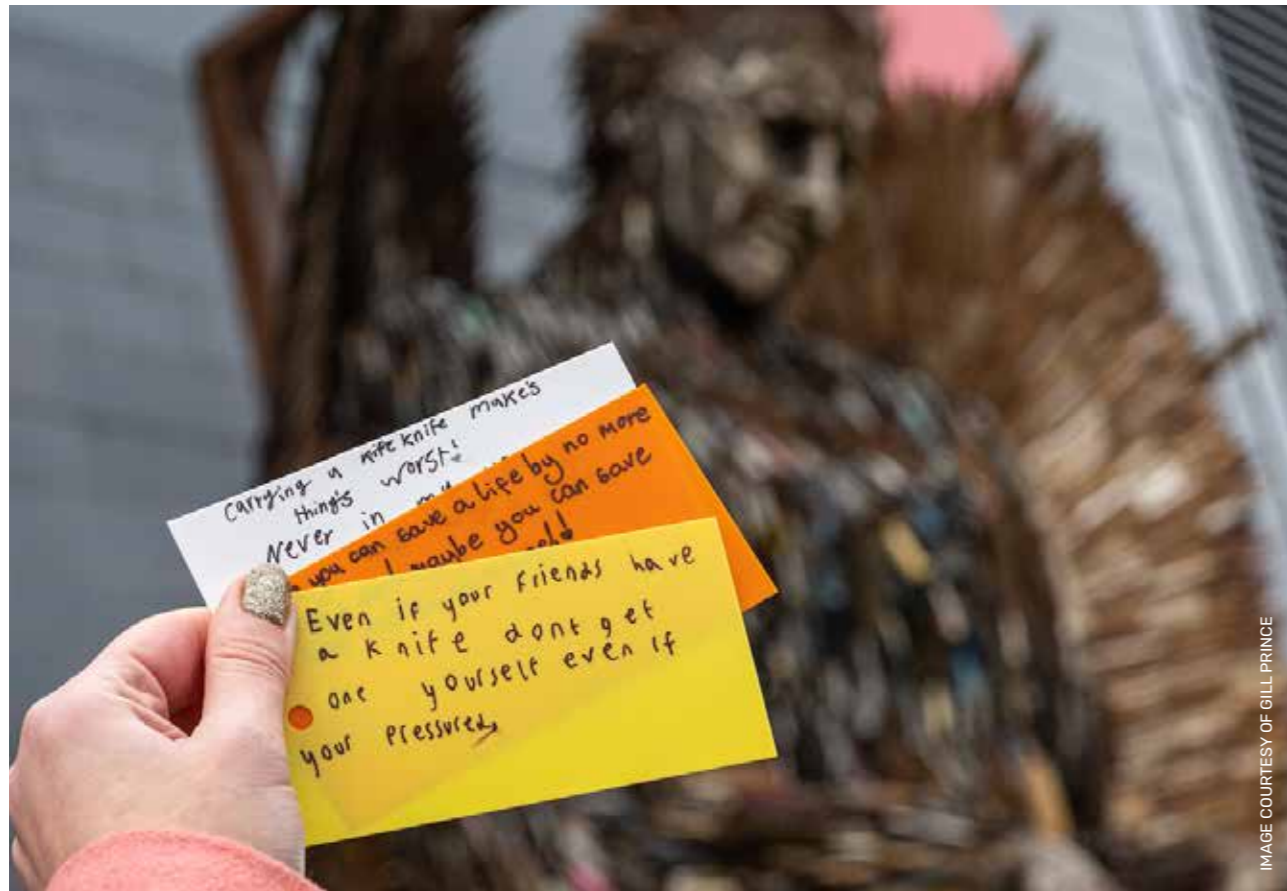 carrying a kife knife makes
thing's worst!
Never in my
you can save a life by no more
maybe you can save
Even if your friends have
a knife dont get
one yourself even if
your pressured
IMAGE COURTESY OF GILL PRINCE